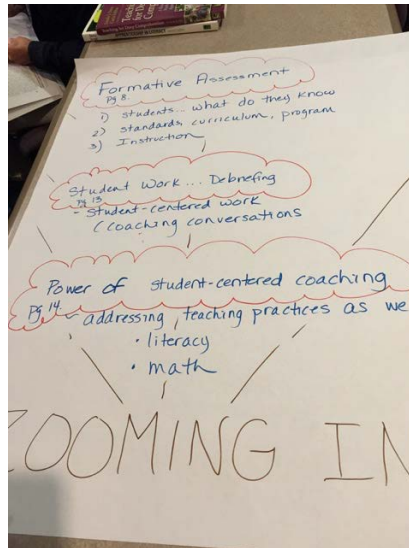 Formative Assessment
Pg 8
1) students... what do they know
2) standards, curriculum, program
3) Instruction
Student Work... Debriefing
Pg 13
- Student-centered work
(coaching conversations
Power of student-centered coaching
Pg 14 - addressing teaching practices as we
• literacy
• math
ZOOMING IN